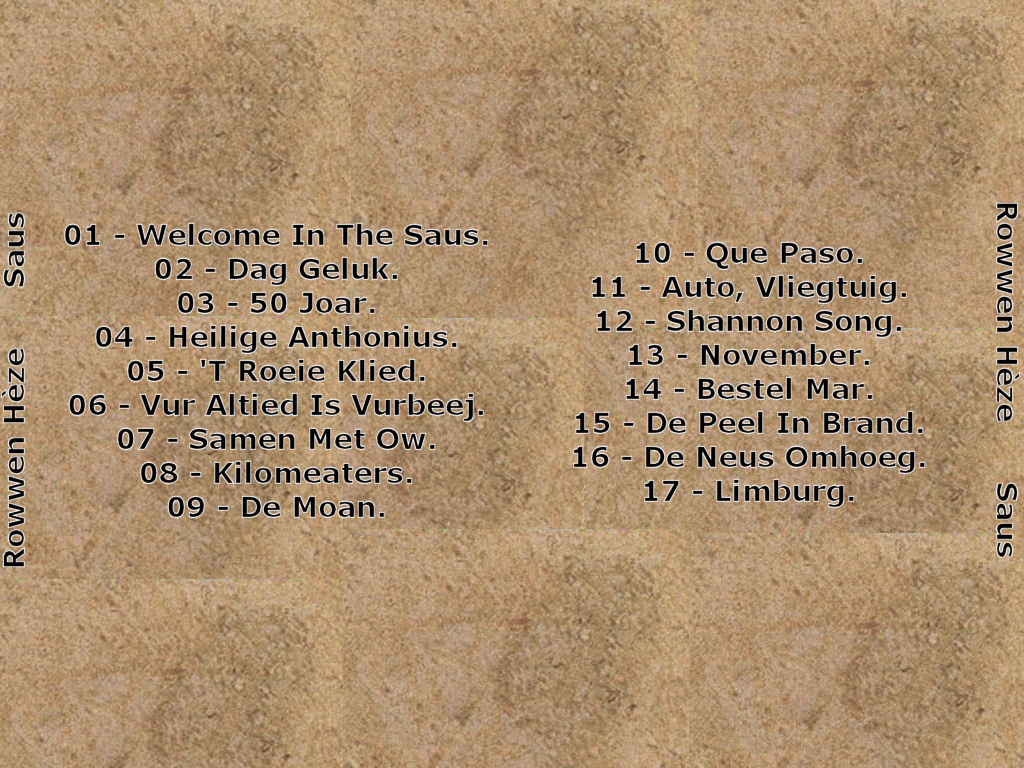 Rowwen Hèze Saus
01 - Welcome In The Saus.
02 - Dag Geluk.
03 - 50 Joar.
04 - Heilige Anthonius.
05 - 'T Roeie Klied.
06 - Vur Altied Is Vurbeej.
07 - Samen Met Ow.
08 - Kilomeaters.
09 - De Moan.
10 - Que Paso.
11 - Auto, Vliegtuig.
12 - Shannon Song.
13 - November.
14 - Bestel Mar.
15 - De Peel In Brand.
16 - De Neus Omhoeg.
17 - Limburg.
Rowwen Hèze Saus